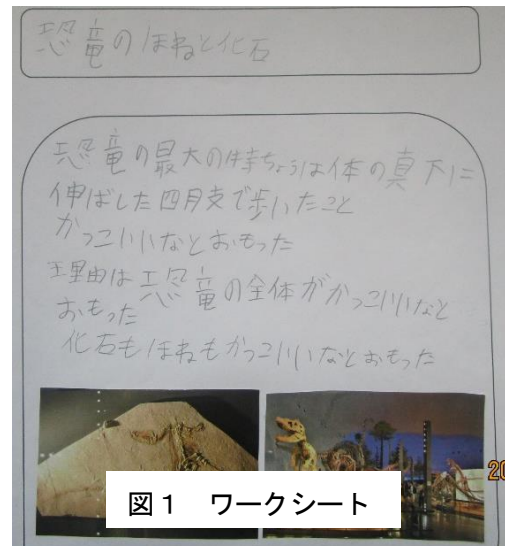 恐竜のほねと化石
恐竜の最大の特ちょうは体の真下に
伸ばした四肢で歩いたこと
かっこいいなとおもった
理由は恐竜の全体がかっこいいなと
おもった
化石もほねもかっこいいなとおもった
20
図1 ワークシート